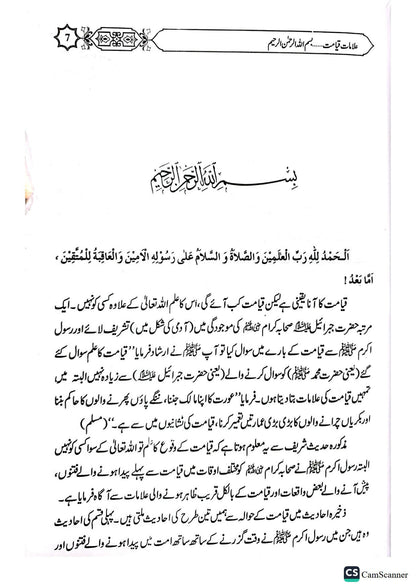 علامات قیامت ..... بسم اللہ الرحمٰن الرحیم
7
بسم الله الرحمن الرحيم
اَلْحَمْدُ لِلّٰهِ رَبِّ الْعٰلَمِيْنَ وَالصَّلَاةُ وَ السَّلَامُ عَلٰى رَسُوْلِهِ الْاَمِيْنَ وَالْعَاقِبَةُ لِلْمُتَّقِيْنَ ،
اَمَّا بَعْدُ !
قیامت کا آنا یقینی ہے لیکن قیامت کب آئے گی، اس کا علم اللہ تعالیٰ کے علاوہ کسی کو نہیں۔ ایک
مرتبہ حضرت جبرائیل علیہ السلام صحابہ کرام رضی اللہ عنہم کی موجودگی میں (آدمی کی شکل میں) تشریف لائے اور رسول
اکرم ﷺ سے قیامت کے بارے میں سوال کیا تو آپ ﷺ نے ارشاد فرمایا ’’قیامت کا علم سوال کئے
گئے (یعنی حضرت محمد ﷺ) کو سوال کرنے والے (یعنی حضرت جبرائیل علیہ السلام) سے زیادہ نہیں البتہ میں
تمہیں قیامت کی علامات بتا دیتا ہوں۔ فرمایا ’’عورت کا اپنا مالک جننا، ننگے پاؤں پھرنے والوں کا حاکم بننا
اور بکریاں چرانے والوں کا بڑی بڑی عمارتیں تعمیر کرنا، قیامت کی نشانیوں میں سے ہے۔‘‘ (مسلم)
مذکورہ حدیث شریف سے یہ معلوم ہوتا ہے کہ قیامت کے وقوع کا علم تو اللہ تعالیٰ کے سوا کسی کو نہیں
البتہ رسول اکرم ﷺ نے صحابہ کرام رضی اللہ عنہم کو مختلف اوقات میں قیامت سے پہلے پیدا ہونے والے فتنوں،
پیش آنے والے بعض واقعات اور قیامت کے بالکل قریب ظاہر ہونے والی علامات سے آگاہ فرمایا ہے۔
ذخیرہ احادیث میں قیامت کے حوالہ سے ہمیں تین طرح کی احادیث ملتی ہیں۔ پہلی قسم کی احادیث
وہ ہیں جن میں رسول اکرم ﷺ نے وقت گزرنے کے ساتھ ساتھ امت میں پیدا ہونے والے فتنوں اور
CS CamScanner